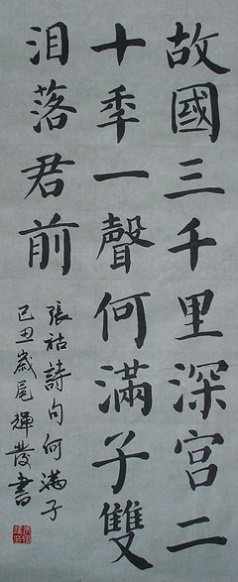 故國三千里深宮二
十季一聲何滿子雙
泪落君前
張祜詩句何滿子
己丑歲尾輝發書